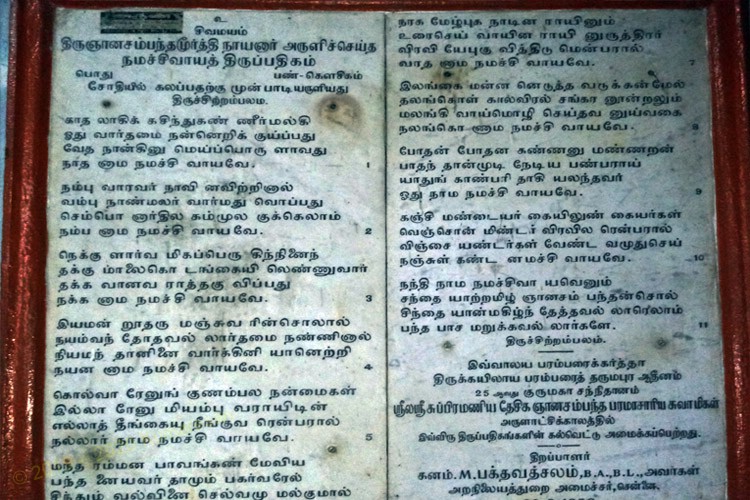 உ
சிவமயம்
திருஞானசம்பந்தமூர்த்தி நாயனார் அருளிச்செய்த
நமச்சிவாயத் திருப்பதிகம்
பொது பண்-கௌசிகம்
சோதியில் கலப்பதற்கு முன் பாடியருளியது
திருச்சிற்றம்பலம்.
காத லாகிக் கசிந்துகண் ணீர்மல்கி
ஓது வார்தமை நன்னெறிக் குய்ப்பது
வேத நான்கினு மெய்ப்பொரு ளாவது
நாத னாம நமச்சி வாயவே. 1
நம்பு வாரவர் நாவி னவிற்றினால்
வம்பு நாண்மலர் வார்மது வொப்பது
செம்பொ னார்தில கம்முல குக்கெலாம்
நம்ப னாம நமச்சி வாயவே. 2
நெக்கு ளார்வ மிகப்பெரு கிந்நினைந்
தக்கு மாலைகொ டங்கையி லெண்ணுவார்
தக்க வானவ ராத்தகு விப்பது
நக்க னாம நமச்சி வாயவே. 3
இயமன் றூதரு மஞ்சுவ ரின்சொலால்
நயம்வந் தோதவல் லார்தமை நண்ணினால்
நியமந் தானினை வார்க்கினி யானெற்றி
நயன னாம நமச்சி வாயவே. 4
கொல்வா ரேனுங் குணம்பல நன்மைகள்
இல்லா ரேனு மியம்பு வராயிடின்
எல்லாத் தீங்கையு நீங்குவ ரென்பரால்
நல்லார் நாம நமச்சி வாயவே. 5
மந்த ரம்மன பாவங்கண் மேவிய
பந்த னையவர் தாமும் பகர்வரேல்
சிந்தும் வல்வினை செல்வமு மல்குமால்
நரக மேழ்புக நாடின ராயினும்
உரைசெய் வாயின ராயி னுருத்திரர்
விரவி யேபுகு வித்திடு மென்பரால்
வரத னாம நமச்சி வாயவே. 7
இலங்கை மன்ன னெடுத்த வடுக்கன்மேல்
தலங்கொள் கால்விரல் சங்கர னூன்றலும்
மலங்கி வாய்மொழி செய்தவ னுய்வகை
நலங்கொ ணாம நமச்சி வாயவே. 8
போதன் போதன கண்ணனு மண்ணறன்
பாதந் தான்முடி நேடிய பண்பராய்
யாதுங் காண்பரி தாகி யலந்தவர்
ஓது நாம நமச்சி வாயவே. 9
கஞ்சி மண்டையர் கையிலுண் கையர்கள்
வெஞ்சொன் மிண்டர் விரவில ரென்பரால்
விஞ்சை யண்டர்கள் வேண்ட வமுதுசெய்
நஞ்சுள் கண்ட னமச்சி வாயவே. 10
நந்தி நாம நமச்சிவா யவெனும்
சந்தை யாற்றமிழ் ஞானசம் பந்தன்சொல்
சிந்தை யான்மகிழ்ந் தேத்தவல் லாரெலாம்
பந்த பாச மறுக்கவல் லார்களே. 11
திருச்சிற்றம்பலம்.
இவ்வாலய பரம்பரைக்கர்த்தா
திருக்கயிலாய பரம்பரைத் தருமபுர ஆதீனம்
25 ஆவது குருமகா சந்நிதானம்
ஸ்ரீலஸ்ரீ சுப்பிரமணிய தேசிக ஞானசம்பந்த பரமாசாரிய சுவாமிகள்
அருளாட்சிக்காலத்தில்
இவ்விரு திருப்பதிகங்களின் கல்வெட்டு அமைக்கப்பெற்றது.
திறப்பாளர்
கனம். M. பக்தவத்சலம், B.A., B.L., அவர்கள்
அறநிலையத்துறை அமைச்சர், சென்னை.